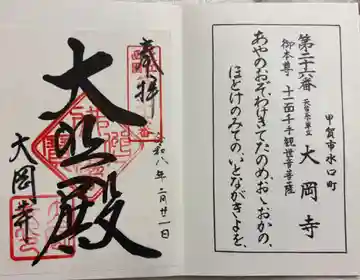 奉拝
大悲殿
大岡寺
令和八年二月廿一日
第二十六番
甲賀市水口町
御本尊 十一面千手観世音菩薩
大岡寺
あやのおそわけきてたのめ、おゝおかの、
ほとけのみての、いとながきよを、